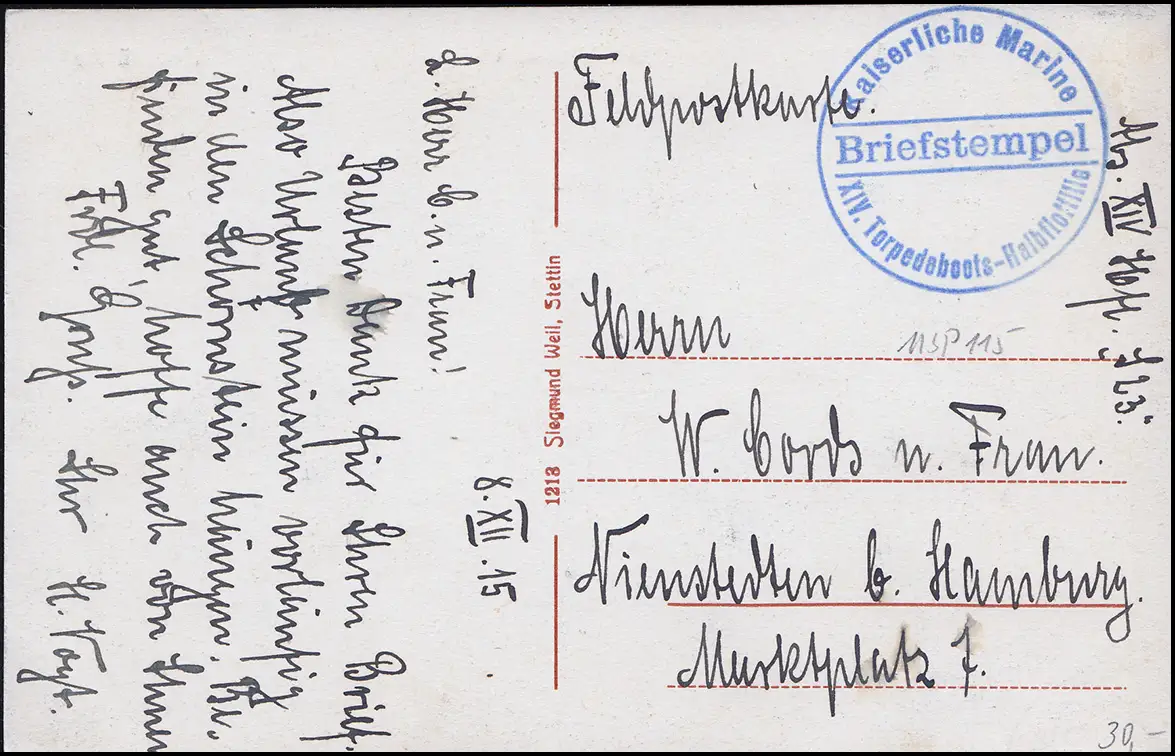 8. XII. 15
L. Herr C. u. Frau!
Besten Dank für Ihren Brief.
Also Urlaub müssen vorläufig
in den Schornstein hängen. Be-
finden gut, hoffe auch von Ihnen
Frdl. Gruß. Ihr H. Vogt.
1213 Siegmund Weil, Stettin
Feldpostkarte.
Kaiserliche Marine
Briefstempel
XIV. Torpedoboots-Halbflottille
Abs. XIV Hlbfl. „S 23“
Herrn
MSP 115
W. Cords u. Frau.
Nienstedten b. Hamburg.
Marktplatz 7.
30,-